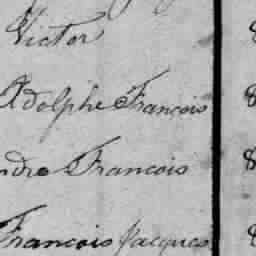 Victor
Adolphe Francois 8
ndre Francois 8
Francois Jacques 8